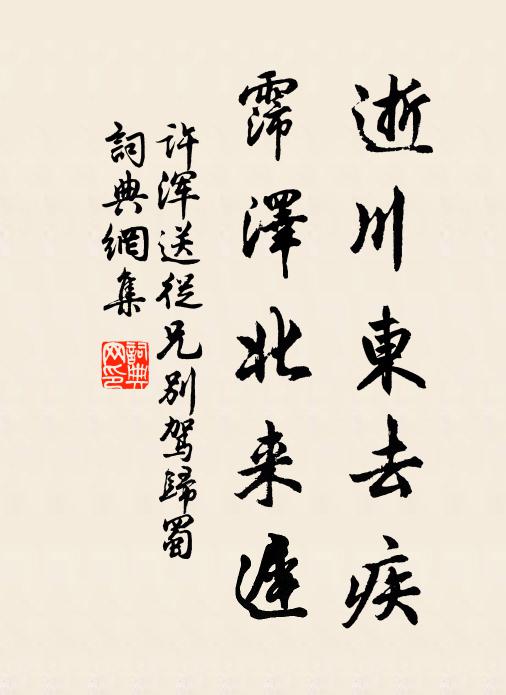 逝川東去疾
霈澤北来遲
许渾送從兄别駕歸蜀
詞典網集
詞典
网印